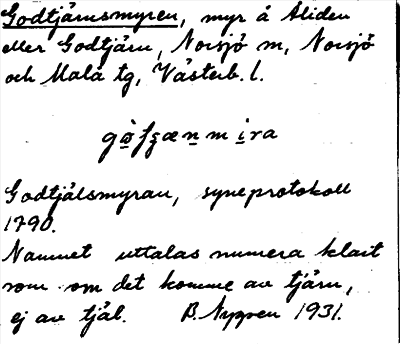 Godtjärnsmyren, myr å Åliden
eller Godtjärn, Norsjö sn, Norsjö
och Malå tg, Västerb. l.
Godtjälsmyran, syneprotokoll
1790.
Namnet uttalas numera klart
som om det komme av tjärn,
ej av tjäl. B. Nyppen 1931.